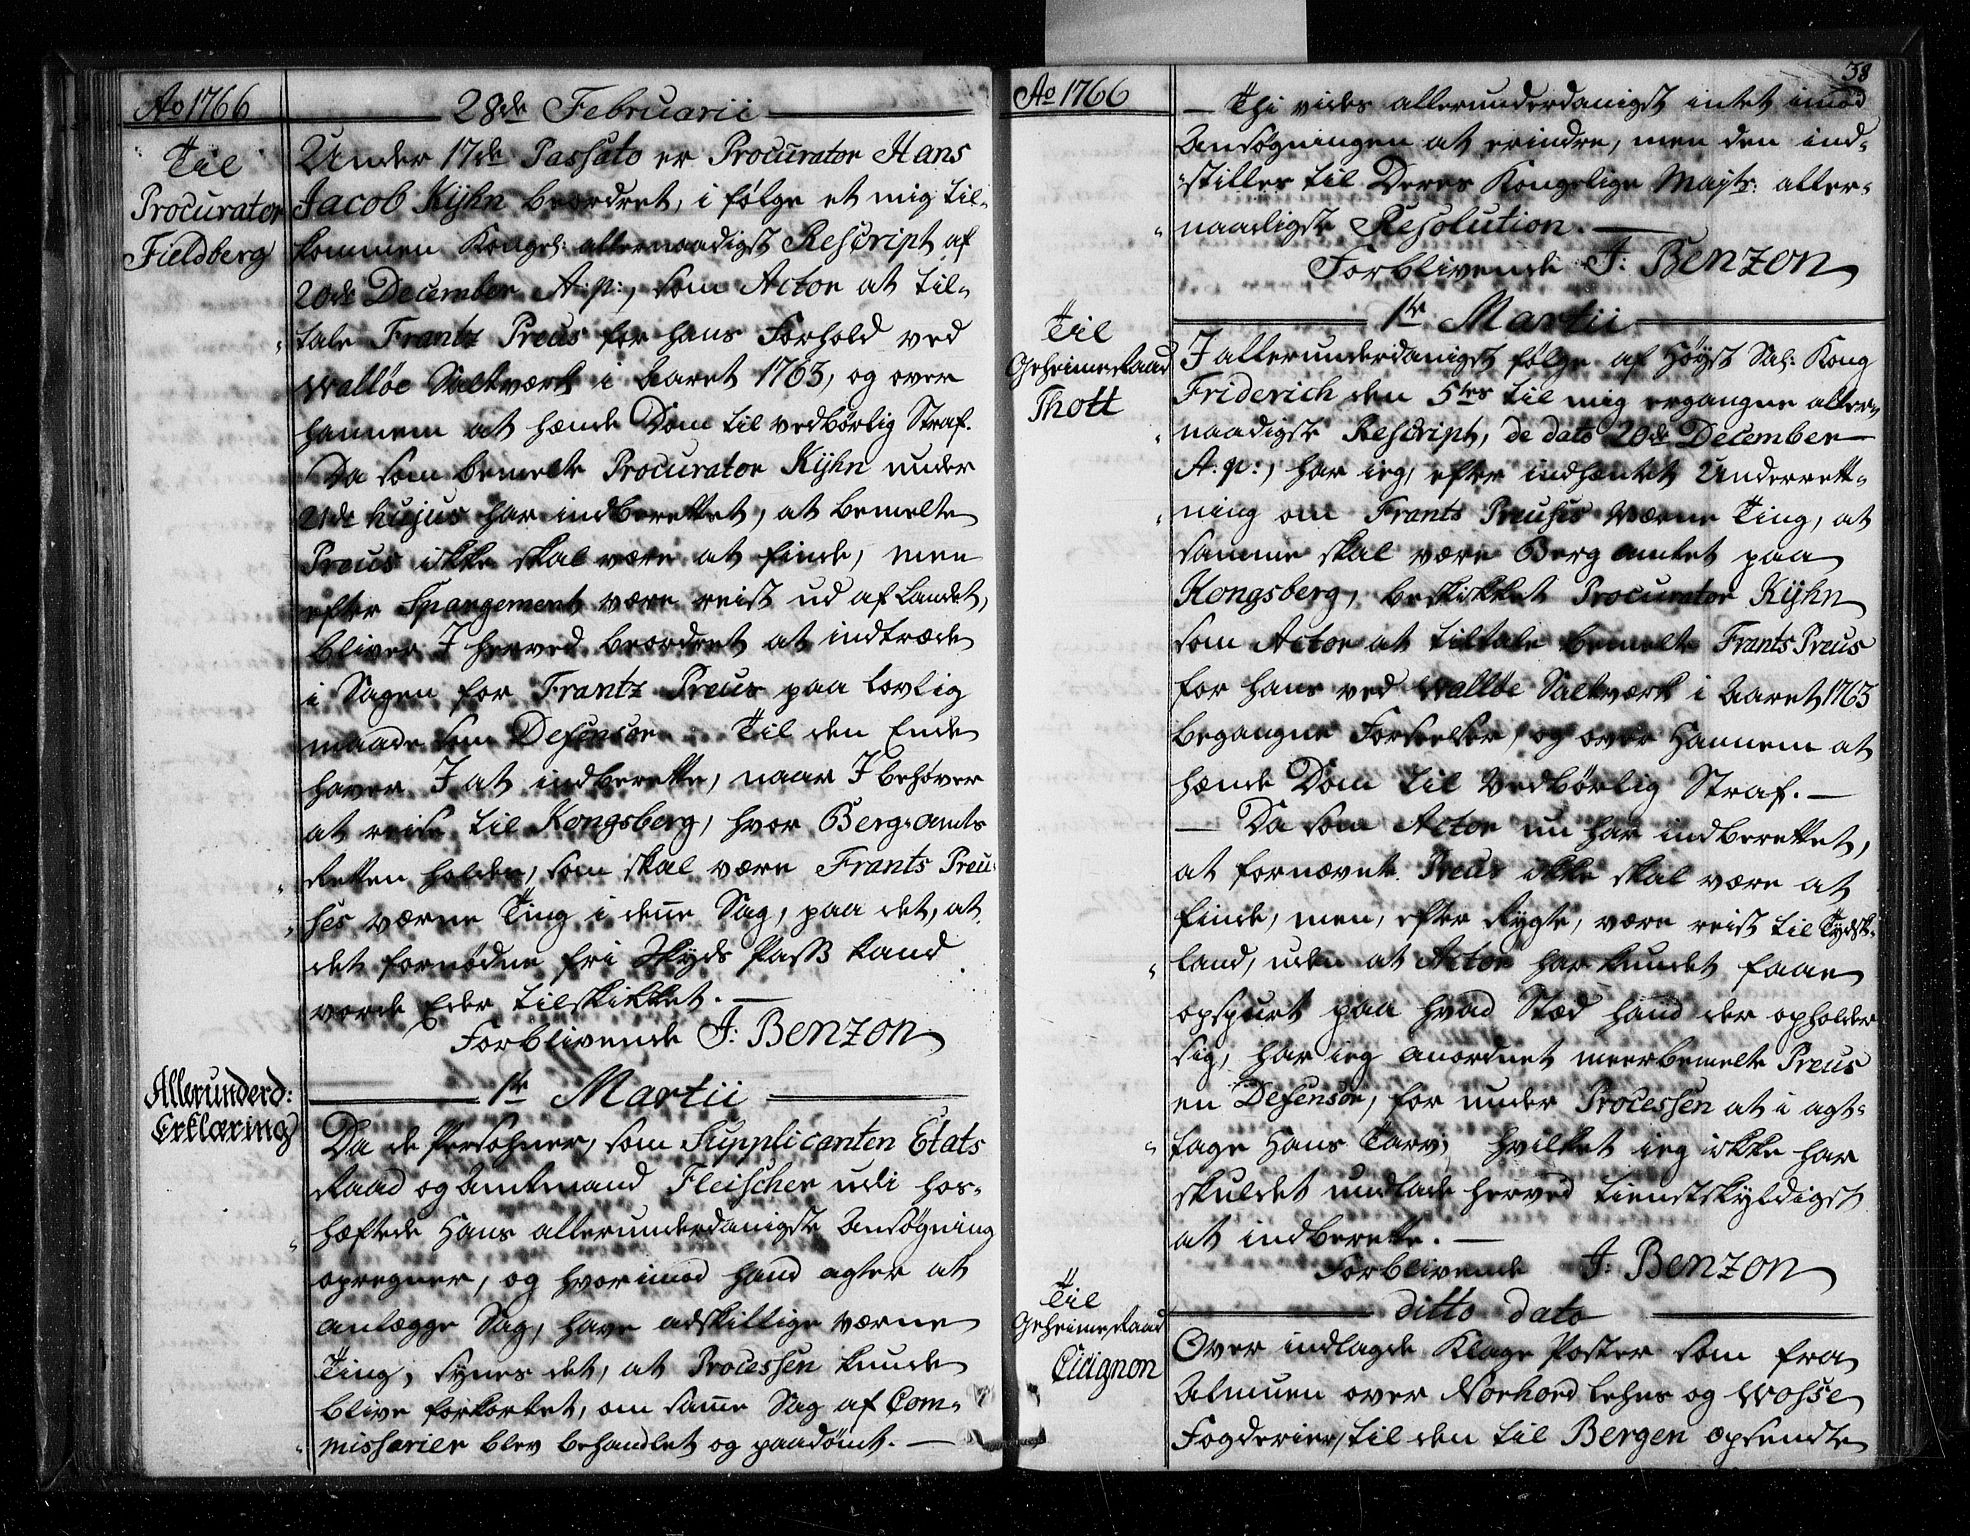 Ao 1766
28de Februarii
Til
Procurator
Fieldberg
Under 17de Passato er Procurator Hans
Jacob Kyhn beordret, i følge et mig til-
kommen Kongel: allernaadigst Rescript af
20de December A: p:, som Actor at til-
"tale Frantz Preus for hans Forhold ved
Walløe Saltværk i Aaret 1763, og over
hannem at hænde Dom til vedbørlig Straf.
Da som bemelte Procurator Kyhn under
21de hujus har indberettet, at bemelte
Preus ikke skal være at finde, men
efter Spargement være reist ud af Landet,
bliver I herved beordret at indtræde
i Sagen for Frantz Preus paa lovlig
maade som Defensor. Til den Ende
haver I at indberette, naar I behøver
at reise til Kongsberg, hvor Berg-amts
"Retten holdes, som skal være Frants Preu-
"ses værne Ting i denne Sag, paa det, at
det fornødne fri Skyds Pass kand
vorde Eder tilskikket. —
Forblivende J: Benzon
1te Martii
Allerunderd:
Erklæring
Da de Persohner, som Supplicanten Etats
Raad og Amtmand Fleischer udi hos-
"hæftede Hans allerunderdanigste Ansøgning
opregner, og hvorimod hand agter at
anlægge Sag, have adskillige værne
Ting, synes det, at Processen kunde
blive forkortet, om samme Sag af Com-
"missarier blev behandlet og paadømt. —
Ao 1766
38
— Thi vides allerunderdanigst intet imod
Ansøgningen at erindre, men den ind-
"stilles til Deres Kongelige Majts: aller-
"naadigste Resolution. —
Forblivende J: Benzon
1te Martii
Til
Geheime Raad
Thott
I allerunderdanigst følge af Høyst Sal: Kong
Friderich den 5tes til mig ergangne aller-
"naadigste Rescript, de dato 20de December
A: p:, har ieg, efter indhæntet Underrett-
"ning om Frants Preuses Værne Ting, at
samme skal være Berg amtet paa
Kongsberg, beskikket Procurator Kyhn
som Actor at tiltale bemelte Frants Preus
for hans ved Walløe Saltværk i Aaret 1763
begangne Forseelser, og over Hannem at
hænde Dom til Vedbørlig Straf. —
— Da som Actor nu har indberettet,
at fornævnte Preus ikke skal være at
finde, men, efter Rygte, være reist til Tydsk-
"land, uden at Actor har kundet faae
opspurt paa hvad Stæd hand der opholder
sig, har ieg anordnet meerbemelte Preus
en Defensor, for under Processen at i agt-
"tage Hans Tarv; hvilket ieg ikke har
skuldet undlade herved tienstskyldigst
at indberette. —
Forblivende J: Benzon
ditto dato
Til
Geheime Raad
Cicignon
Over indlagde Klage Poster som fra
Almuen over Norhord lehns og Wosse
Fogderier, til den til Bergen opsendte